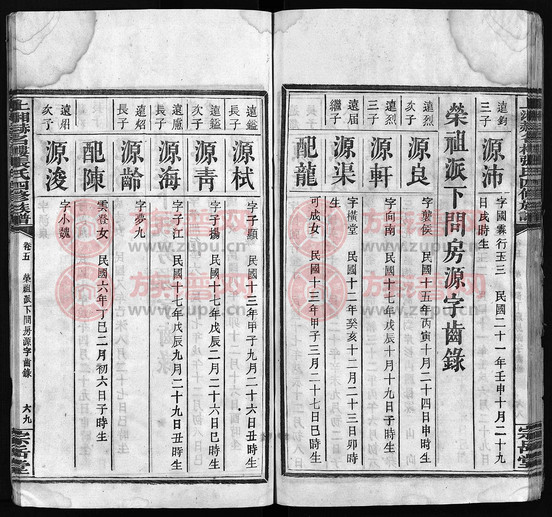 遠鈞
三子
源沛
字國霖行五三 民國二十一年壬申十月二十九
日戌時生
榮祖派下問房源字齒錄
遠烈
次子
源良
字襲侯 民國十五年丙寅十月二十四日申時生
遠烈
三子
源軒
字向南 民國十七年戊辰十月十九日子時生
遠屆
繼子
源渠
字橫堂 民國十二年癸亥十二月二十三日卯時
配龍
可成女 民國十三年甲子三月二十七日巳時生
遠鑑
長子
源栻
字子顯 民國十三年甲子九月二十六日丑時生
遠鑑
次子
源青
字子揚 民國十七年戊辰二月二十六日巳時生
遠慮
長子
源海
字子江 民國十七年戊辰九月二十九日丑時生
遠炤
長子
源齡
字夢九
配陳
雲登女 民國六年丁巳二月初六日子時生
遠炤
次子
源浚
字小魏
張氏四修族譜
卷五
榮祖派下問房源字齒錄
六九
宗岳堂
族谱网
www.zupu.cn
族谱网
www.zupu.cn